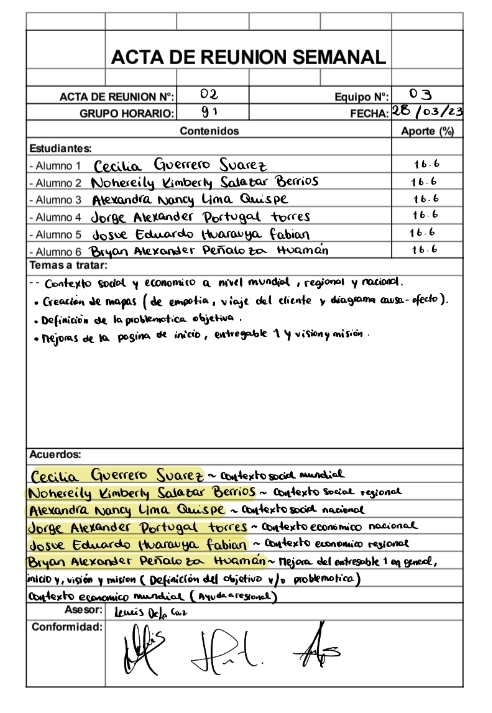 ACTA DE REUNION SEMANAL
ACTA DE REUNION Nº: 02 Equipo Nº: 03
GRUPO HORARIO: 91 FECHA: 28/03/23
Contenidos Aporte (%)
Estudiantes:
- Alumno 1 Cecilia Guerrero Suarez 16.6
- Alumno 2 Nohereily Kimberly Salazar Berrios 16.6
- Alumno 3 Alexandra Nancy Lima Quispe 16.6
- Alumno 4 Jorge Alexander Portugal torres 16.6
- Alumno 5 Josue Eduardo Huarauya fabian 16.6
- Alumno 6 Bryan Alexander Peñaloza Huamán 16.6
Temas a tratar:
-- Contexto social y economico a nivel mundial, regional y nacional.
• Creación de mapas (de empatia, viaje del cliente y diagrama causa-efecto).
• Definición de la problematica objetiva.
• Mejoras de la pagina de inicio, entregable 1 y vision y misión.
Acuerdos:
Cecilia Guerrero Suarez ~ contexto social mundial
Nohereily Kimberly Salazar Berrios ~ contexto social regional
Alexandra Nancy Lima Quispe ~ contexto social nacional
Jorge Alexander Portugal torres ~ contexto economico nacional
Josue Eduardo Huarauya fabian ~ contexto economico regional
Bryan Alexander Peñaloza Huamán ~ Mejora del entregable 1 en general,
inicio y, visión y mision (Definición del objetivo y/o problematica)
Contexto economico mundial (Ayuda a regional)
Asesor: Lewis De la Cruz
Conformidad: